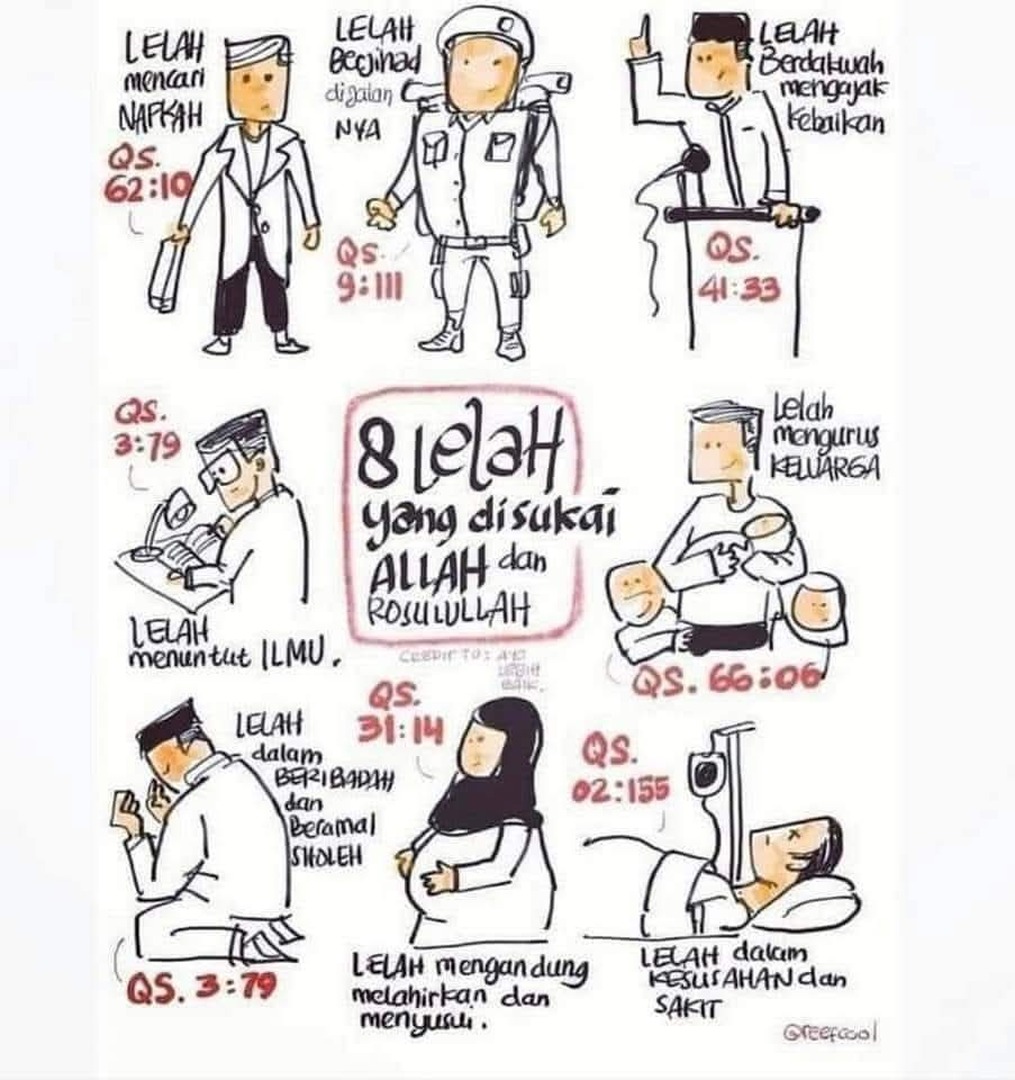 LELAH
mencari
NAFKAH
QS.
62:10
LELAH
Berjihad
dijalan
NYA
QS.
9:111
LELAH
Berdakwah
mengajak
Kebaikan
QS.
41:33
QS.
3:79
LELAH
menuntut ILMU.
8 LelaH
yang disukai
ALLAH dan
ROSULULLAH
CREDIT TO: AYO
LEBIH
BAIK.
Lelah
mengurus
KELUARGA
QS. 66:06
LELAH
dalam
BERIBADAH
dan
Beramal
SHOLEH
QS. 3:79
QS.
31:14
LELAH mengandung
melahirkan dan
menyusui.
QS.
02:155
LELAH dalam
KESUSAHAN dan
SAKIT
@reefcool